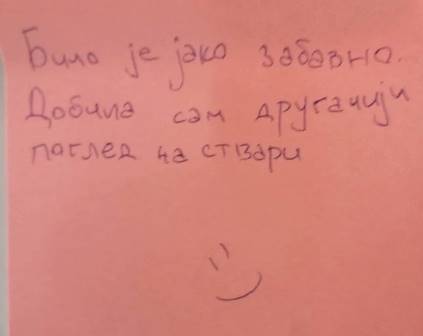 Било је јако забавно.
Добила сам другачији
паглед на ствари